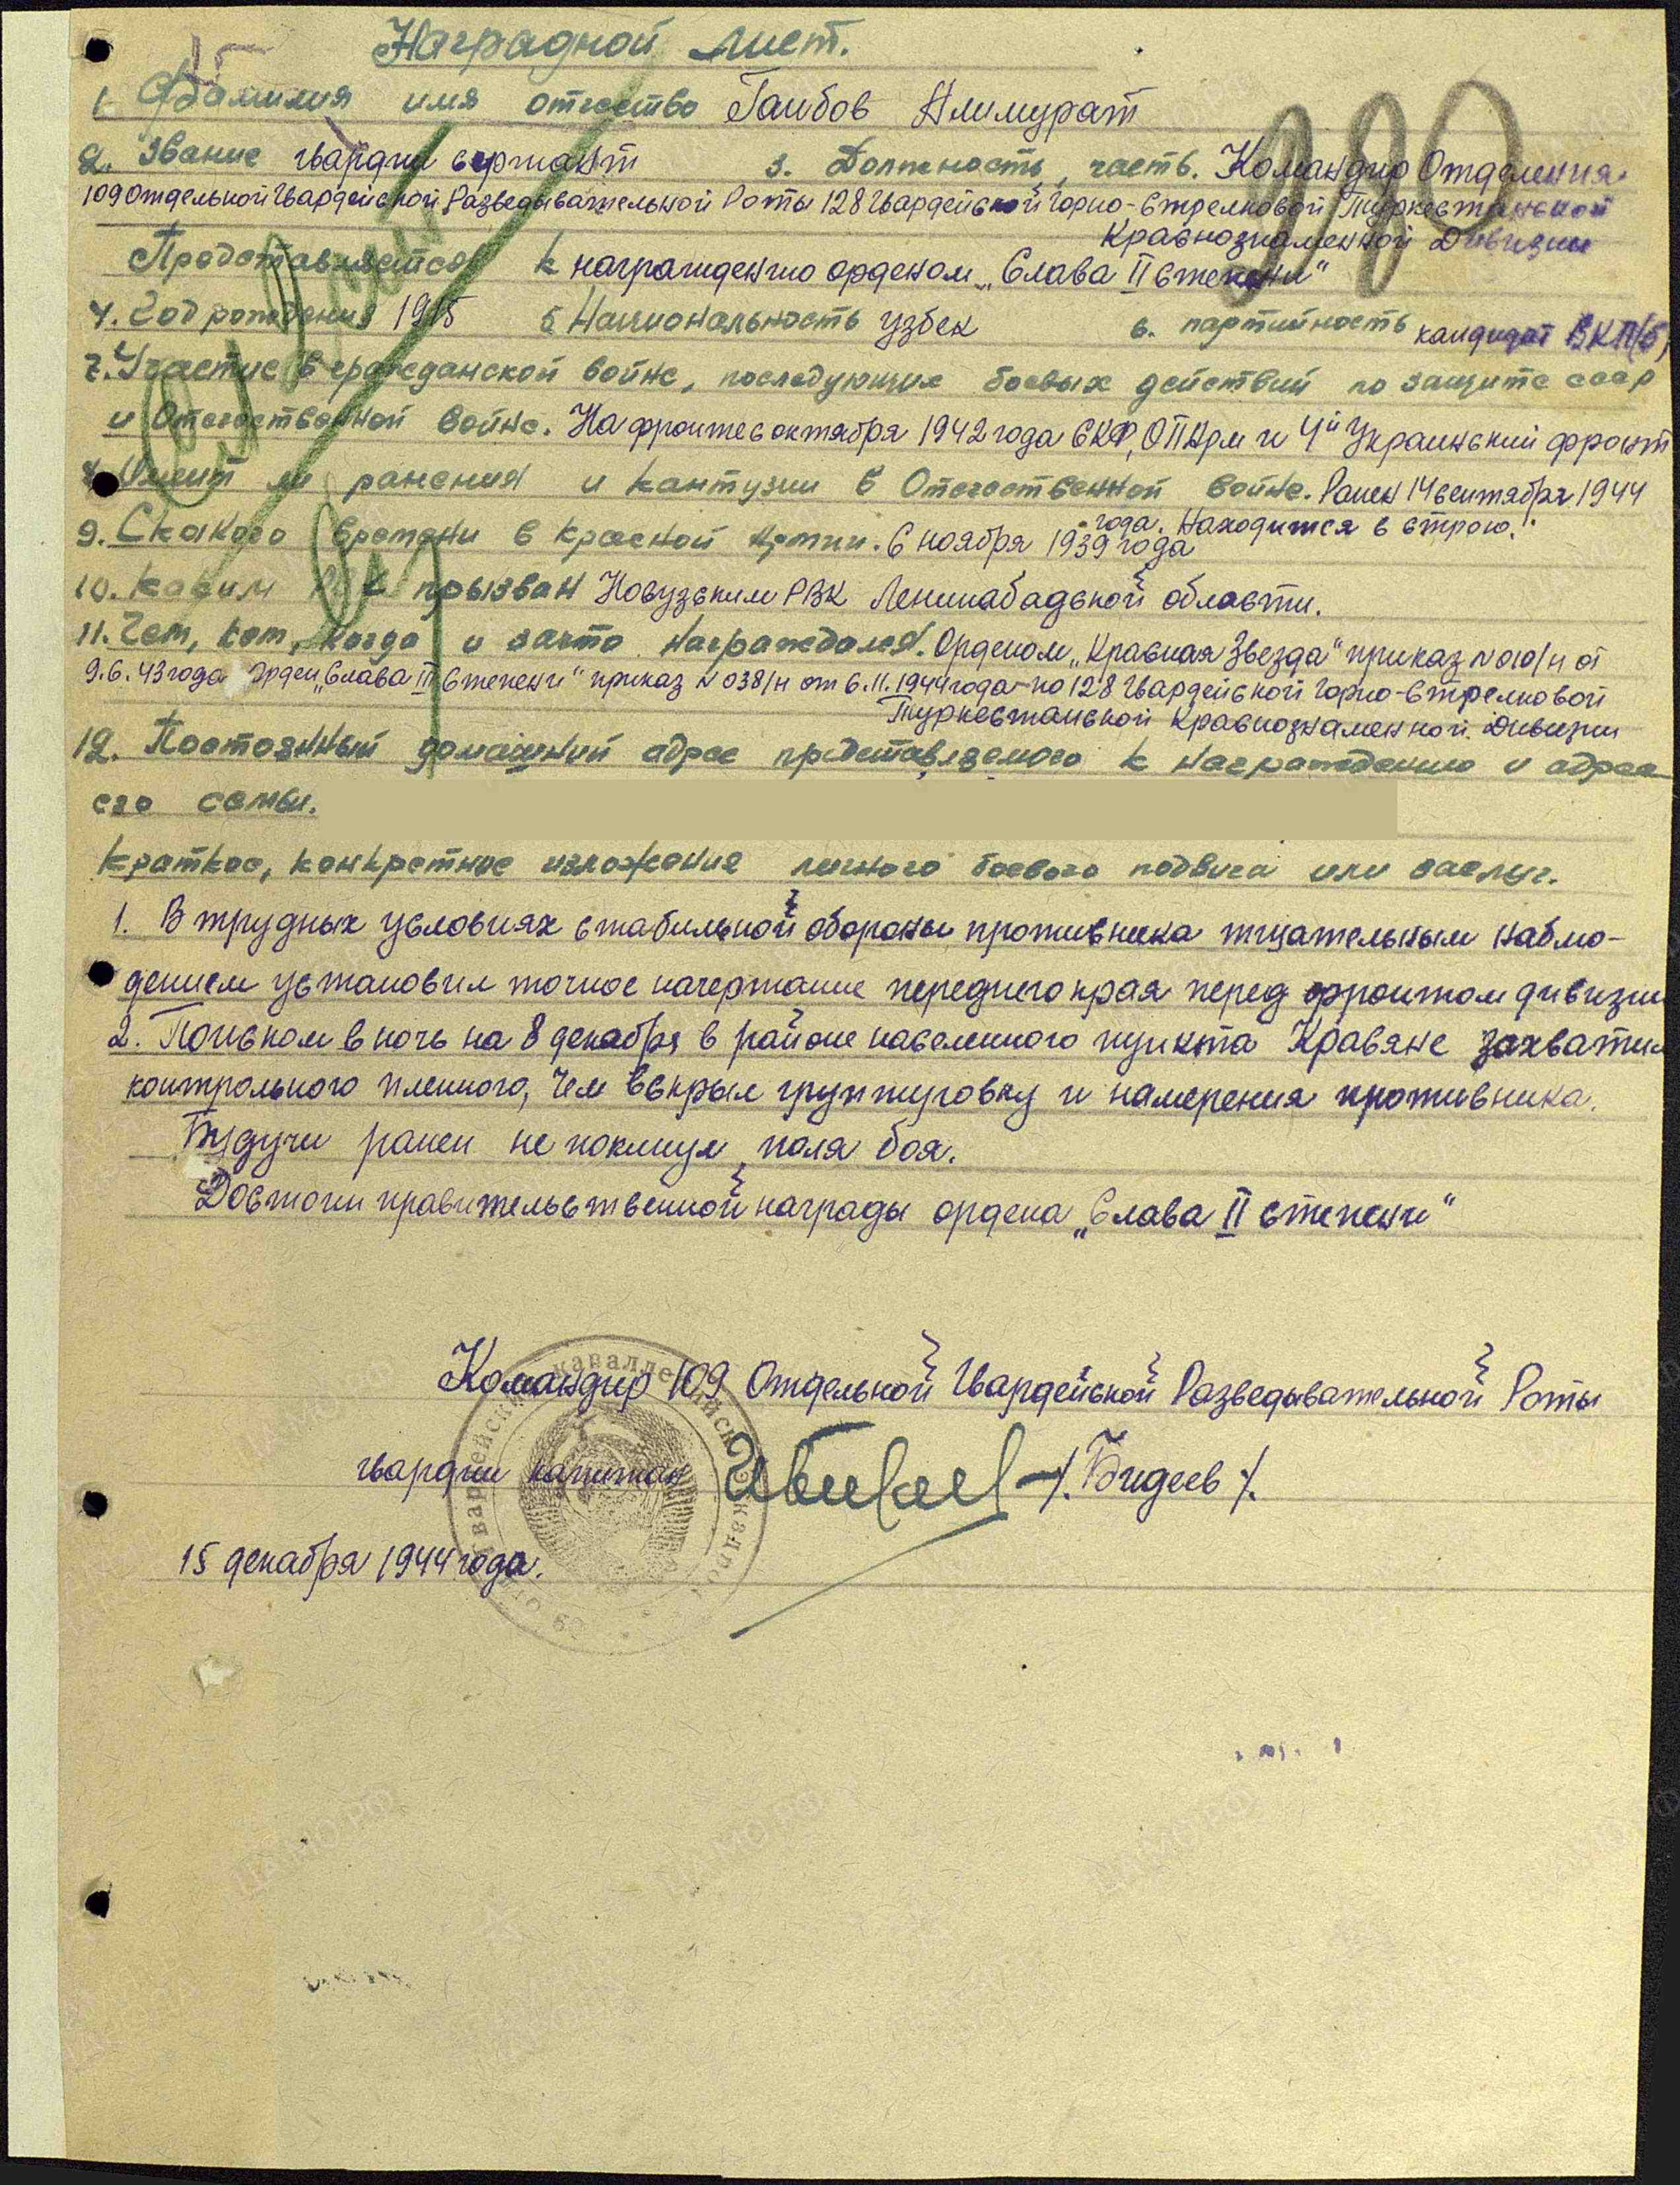 Наградной лист.
1. Фамилия имя отчество Гаибов Алимурат
2. Звание гвардии сержант 3. Должность, часть. Командир Отделения
109 Отдельной Гвардейской Разведывательной Роты 128 Гвардейской Горно-Стрелковой Туркестанской
Краснознаменной Дивизии
Продставляется к награждению орденом „Слава II степени"
4. Год рождения 1915 5. Национальность узбек 6. партийность кандидат ВКП(б)
7. Участие в гражданской войне, последующие боевых действий по защите ссср
и Отечественной войне. На фронте с октября 1942 года СКФ, ОПКрм и 4й Украинский фронт
8. Имеит ли ранения и кантузии в Отечественной войне. Ранен 14 сентября 1944
года. Находится в строю.
9. Скакого времени в Красной Армии. С ноября 1939 года
10. Каким РВК прызван Новузским РВК Ленинабадской области.
11. Чем, кем, когда и зачто награждался. Орденом „Красная Звезда" приказ N 010/н от
9.6.43 года Орден „Слава III Степени" приказ N 038/н от 6.11.1944 года по 128 Гвардейской Горно-Стрелковой
Туркестанской Краснознаменной Дивизии
12. Постоянный домашний адрес представляемого к награждению и адрес
его семьи.
Краткое, конкретное изложения личного боевого подвига или заслуг.
1. В трудных условиях стабильной обороны противника тщательным наблю-
дением установил точное начертание переднего края перед фронтом дивизии
2. Поиском в ночь на 8 декабря в районе населенного пункта Кравяне захватил
контрольного пленного, чем вскрыл группировку и намерения противника.
Будучи ранен не покинул поля боя.
Достоин правительственной награды ордена „Слава II степени"
Командир 109 Отдельной Гвардейской Разведывательной Роты
гвардии капитан /. Бидеев /.
15 декабря 1944 года.